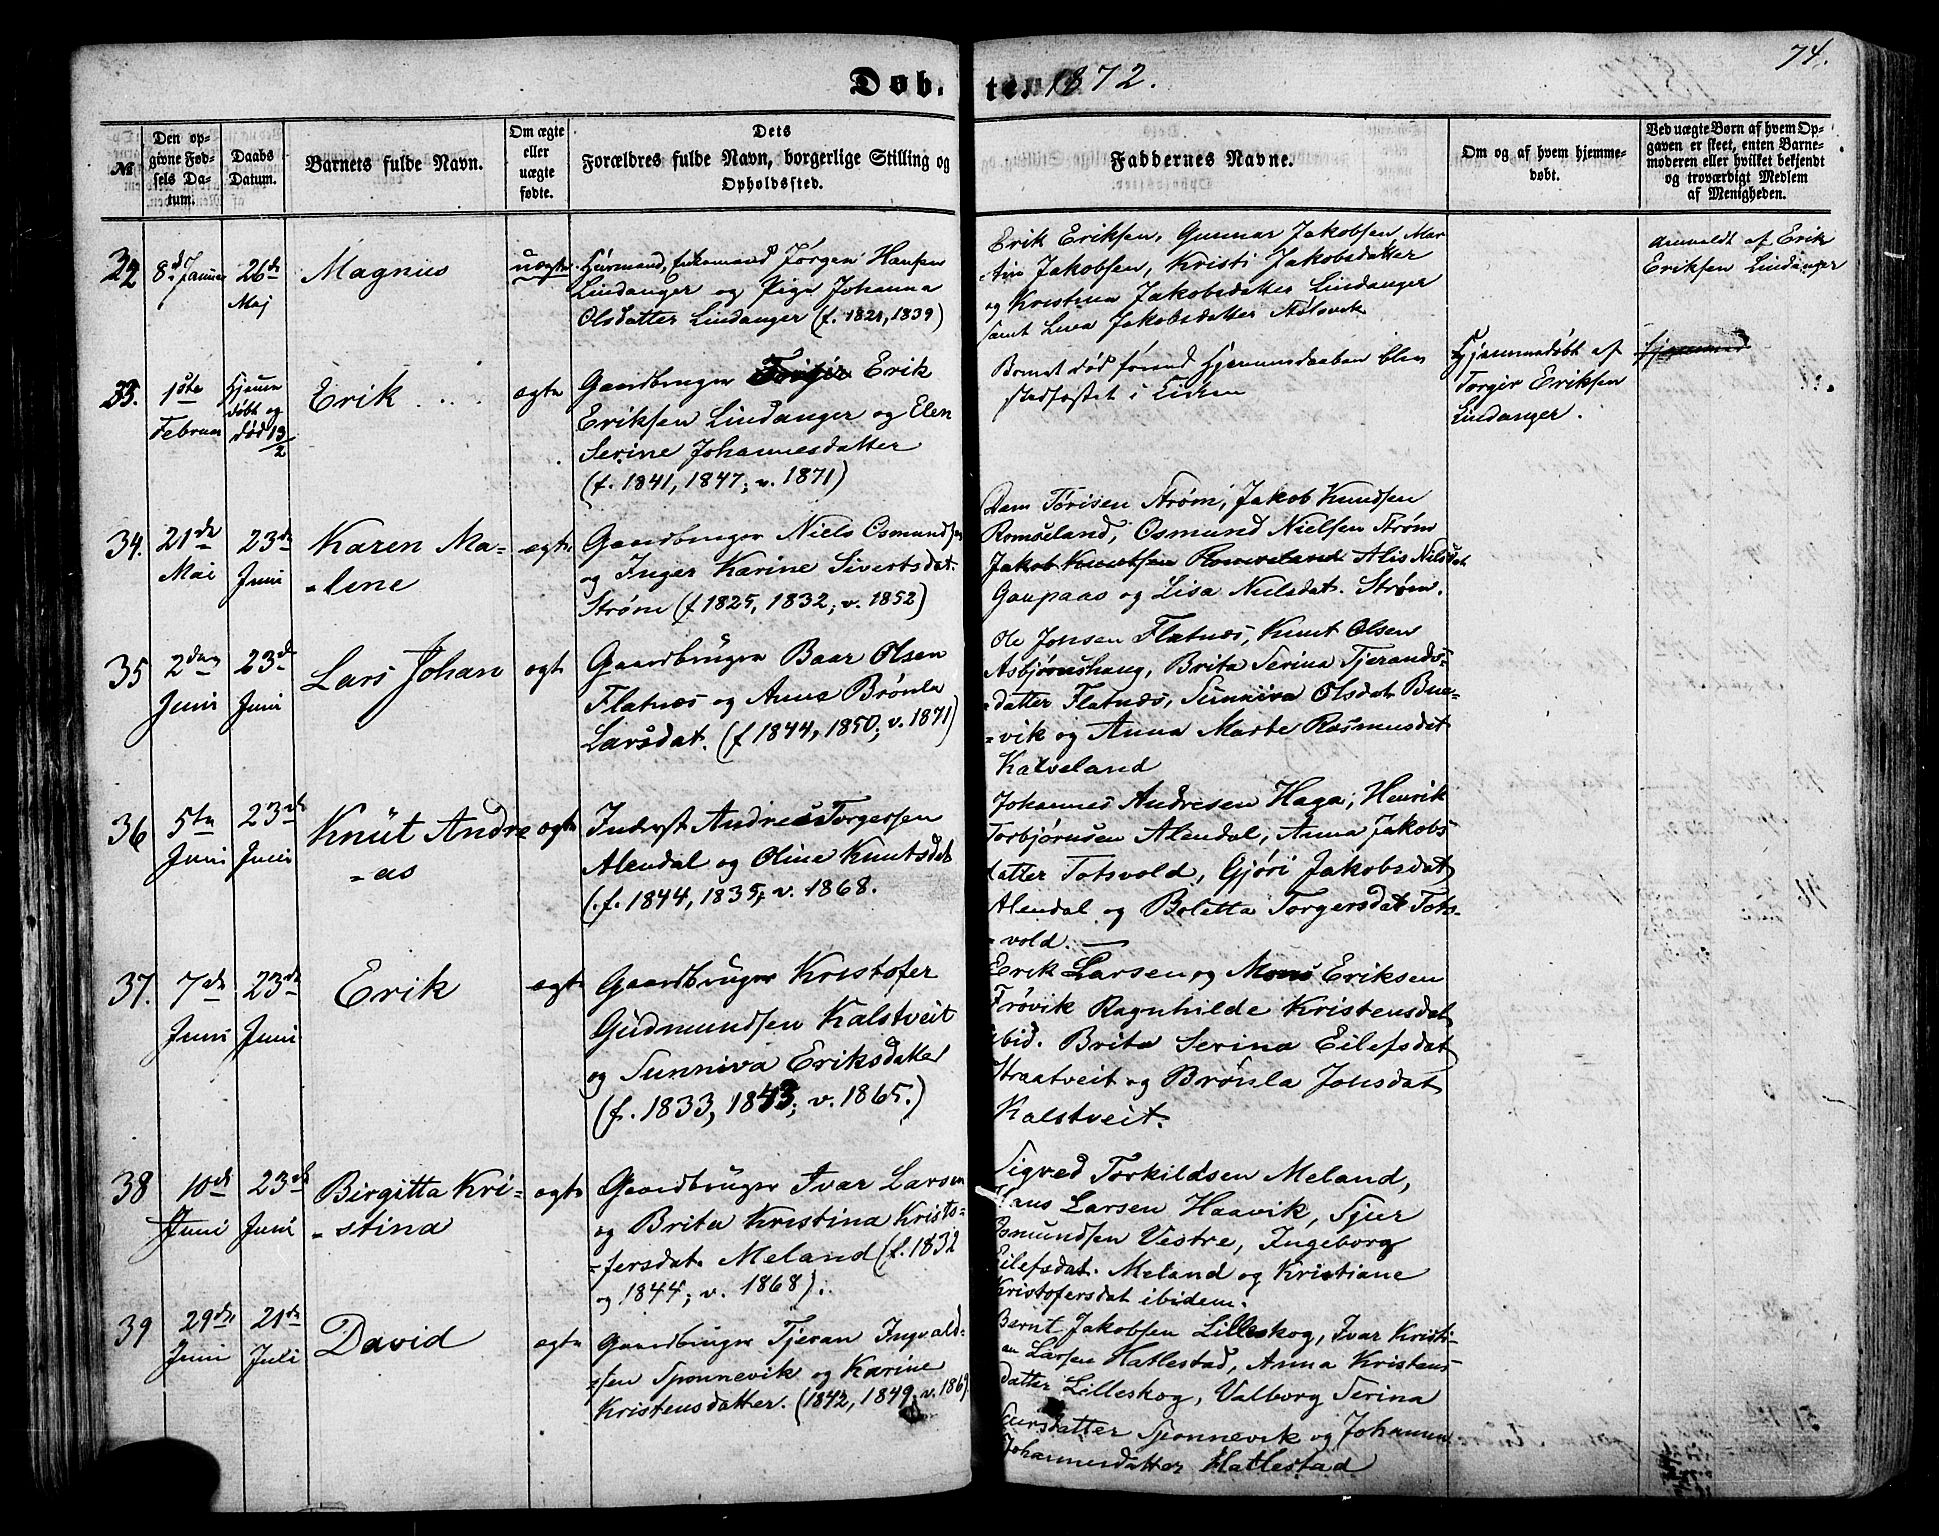 74.
Døbte. 1872.
№
Den op-
givne Fød-
sels Da-
tum.
Daabs
Datum.
Barnets fulde Navn.
Om ægte
eller
uægte
fødte.
Dets
Forældres fulde Navn, borgerlige Stilling og
Opholdssted.
Faddernes Navne.
Om og af hvem hjemme-
døbt.
Ved uægte Børn af hvem Op-
gaven er skeet, enten Barne-
moderen eller hvilket bekjendt
og troværdigt Medlem
af Menigheden.
32
8d Januar
26de
Maj
Magnus
uægte
Huusmand, Enkemand Jørgen Hansen
Lindanger og Pige Johanna
Olsdatter Lindanger (f. 1821, 1839)
Erik Eriksen, Gunnar Jakobsen Mar
tin Jakobsen, Kristi Jakobsdatter
og Kristina Jakobsdatter Lindanger
samt Lina Jakobsdatter Aalsvik
Anmeldt af Erik
Eriksen Lindanger
33.
1ste
Februar
Hjemme
døbt og
død 13/2
Erik
ægte
Gaardbruger Torger Erik
Eriksen Lindanger og Elen
Serine Johannesdatter
(f. 1841, 1847; v. 1871)
Barnet død førend Hjemmedaaben blev
stadfæstet i Kirken
Hjemmedøbt af
Torger Eriksen
Lindanger.
34.
21de
Mai
23de
Juni
Karen Ma-
-lene
ægte
Gaardbruger Niels Osmundsen
og Inger Karine Sivertsdat.
Strøm (f 1825, 1832; v. 1852)
Strøm, Jakob Knudsen
Romseland, Osmund Nielsen Strøm
Jakob Knutsen Romseland Alis Nilsdat
Gaupaas og Lisa Nielsdat. Strøm.
35
2den
Juni
23de
Juni
Lars Johan
ægte
Gaardbruger Baar Olsen
Flatnes og Anna Brønla
Larsdat. (f 1844, 1850; v. 1871)
Ole Jonsen Flatnes, Knut Olsen
Asbjørnshaug, Brita Serina Tjerands-
datter Flatnæs, Sunniva Olsdat Bue-
-vik og Anna Marte Rasmusdat
Kalveland
36
5te
Juni
23de
Juni
Knüt Andre
-as
ægte
Inderst Andreas Torgersen
Alendal og Oline Knutsdat
(f. 1844, 1835; v. 1868.
Johannes Andresen Haga, Henrik
Torbjørnsen Alendal, Anna Jakobs
datter Totsvold, Gjøri Jakobsdat
Alendal og Boletta Torgersdat Tots-
-vold.
37.
7de
Juni
23de
Juni
Erik
ægte
Gaardbruger Kristofer
Gudmundsen Kalstveit
og Sunniva Eriksdatter
(f. 1833, 1843; v. 1865.)
Erik Larsen og Mons Eriksen
Frøvik Ragnhilde Kristensdat
ibid. Brita Serina Eilefsdat
Straatveit og Brønla Jonsdat
Kalstveit.
38
10de
Juni
23de
Juni
Birgitta Kri-
-stina
ægte
Gaardbruger Ivar Larsen
og Brita Kristina Kristo-
-fersdat. Meland (f. 1832
og 1844; v. 1868).
Sigved Torkildsen Meland,
Hans Larsen Haavik, Sjur
Osmundsen Vestre, Ingeborg
Eilefsdat. Meland og Kristiane
Kristofersdat ibidem.
39
29de
Juni
21de
Juli
David
ægte
Gaardbruger Tjeran Ingvald-
-sen Sponnevik og Karine
Kristensdatter. (1842, 1849, v. 1869)
Bernt Jakobsen Lilleskog, Ivar Kristi-
an Larsen Hatlestad, Anna Kristens-
datter Lilleskog, Valborg Serina
datter Sponnevik og Johanna
Johannesdatter Hatlestad